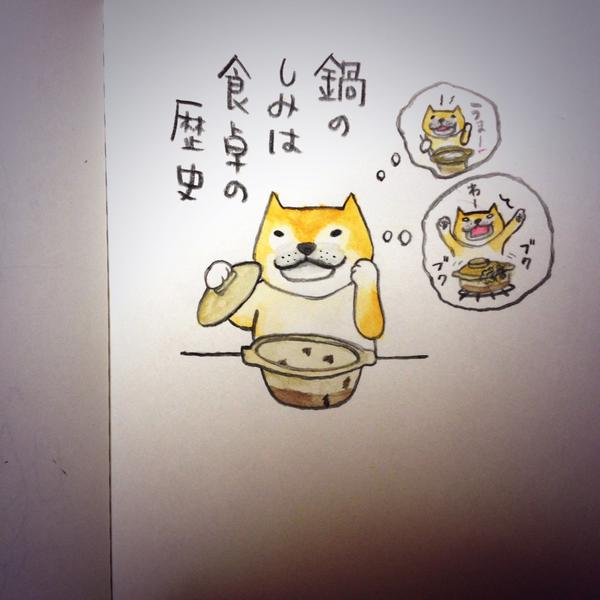 鍋の
しみは
食卓の
歴史
うまーっ
わー
ブク
ブク